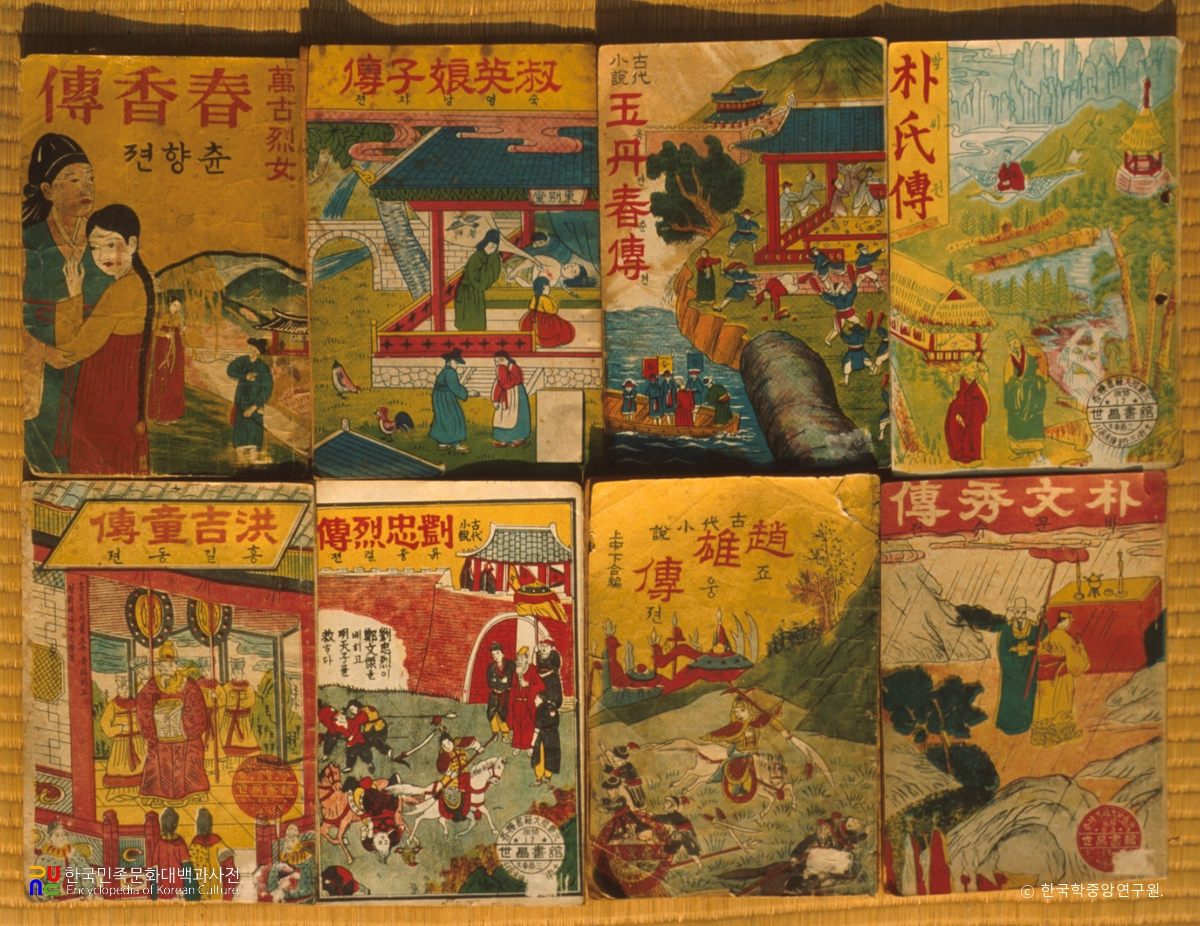 萬古烈女
春香傳
츈향젼
叔英娘子傳
숙영낭자젼
東別堂
古代小說
玉丹春傳
옥단춘젼
朴氏傳
世昌書館
洪吉童傳
홍길동젼
世昌書館
古代小說
劉忠烈傳
劉忠烈이
鄭文傑을
베히고
明天子를
救하다
世昌書館
古代小說
趙雄傳
조웅젼
上中下合編
朴文秀傳
박문슈젼
世昌書館
한국민족문화대백과사전
Encyclopedia of Korean Culture
© 한국학중앙연구원.